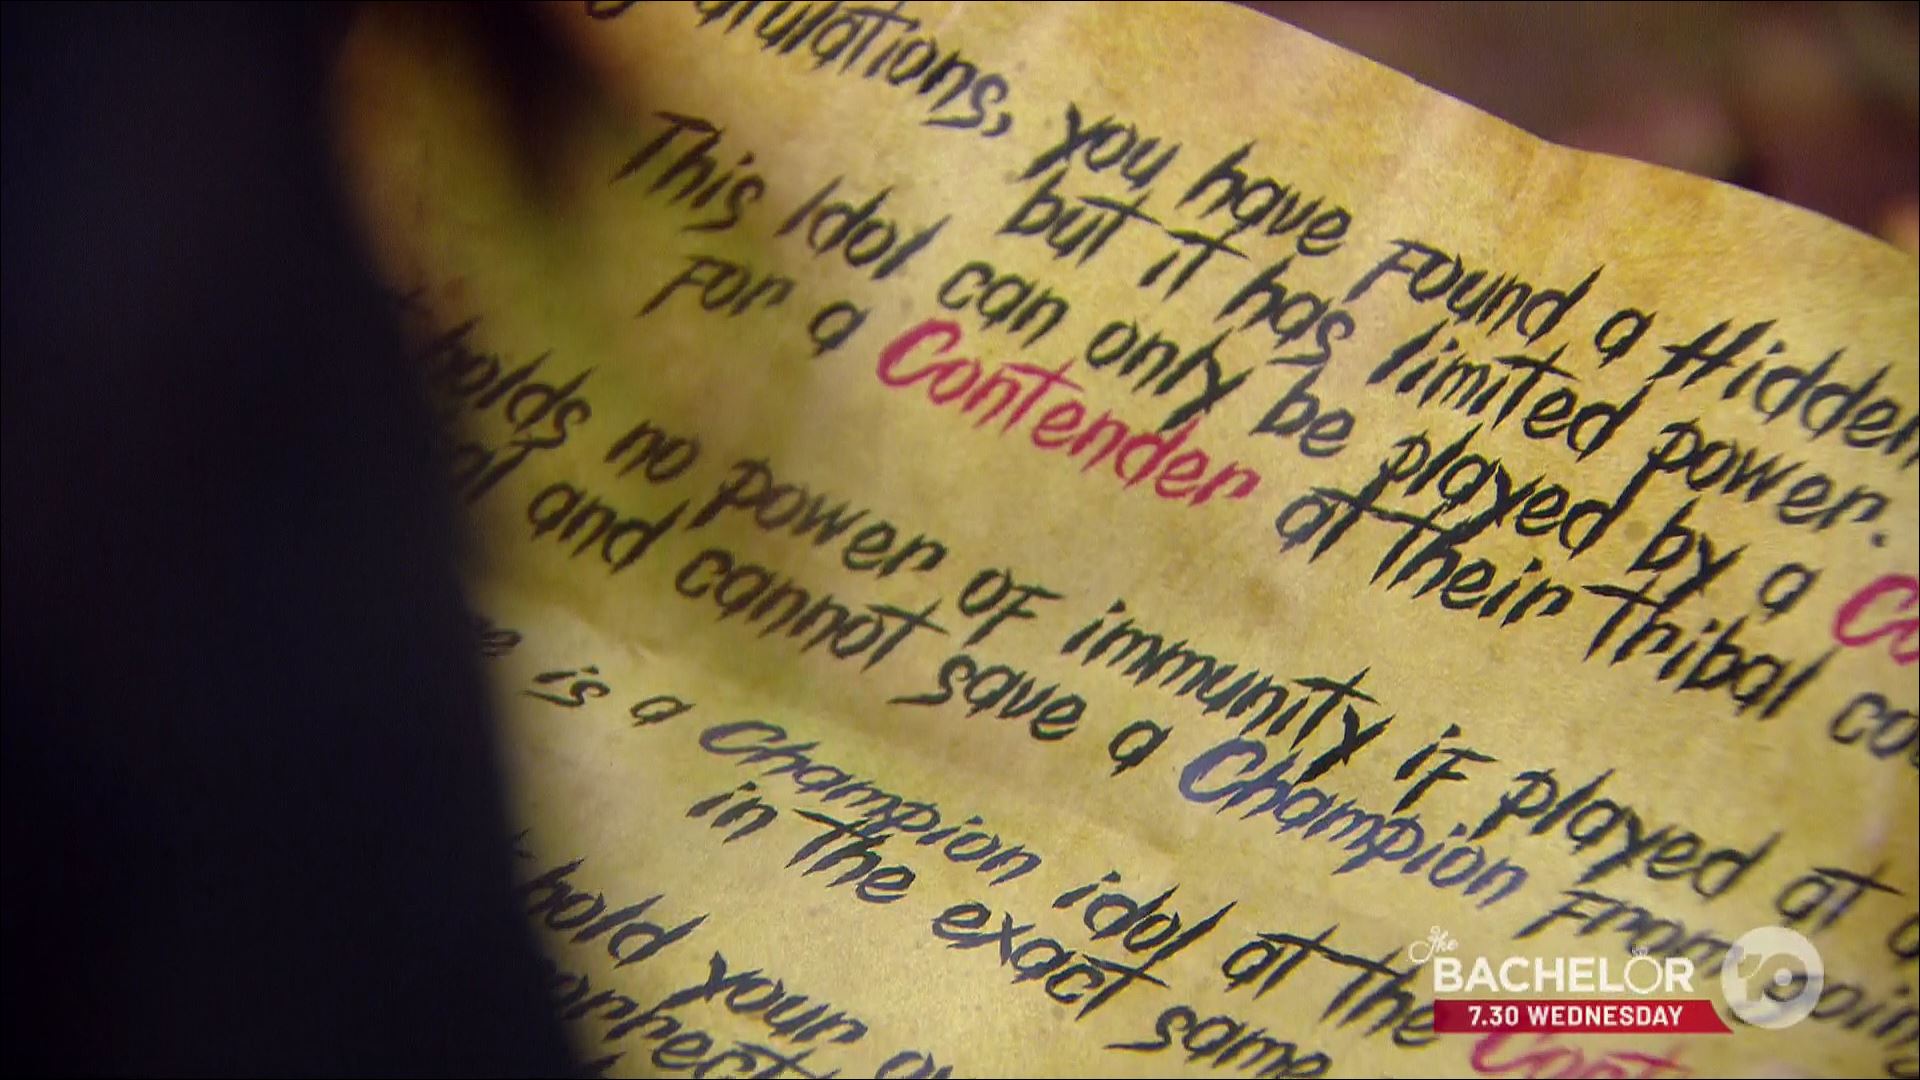 you have Found a Hidden
but it has limited power.
This Idol can only be played by a
For a Contender at their Tribal
holds no power oF immunity iF played at
and cannot save a Champion From going
is a Champion idol at the
in the exact same
hold your
The
BACHELOR
7.30 WEDNESDAY
10